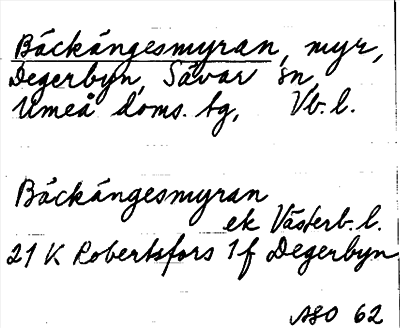 Bäckängesmyran, myr,
Degerbyn, Sävar sn,
Umeå doms. tg, Vb. l.
Bäckängesmyran
ek Västerb. l.
21 K Robertsfors 1 f Degerbyn
ASO 62